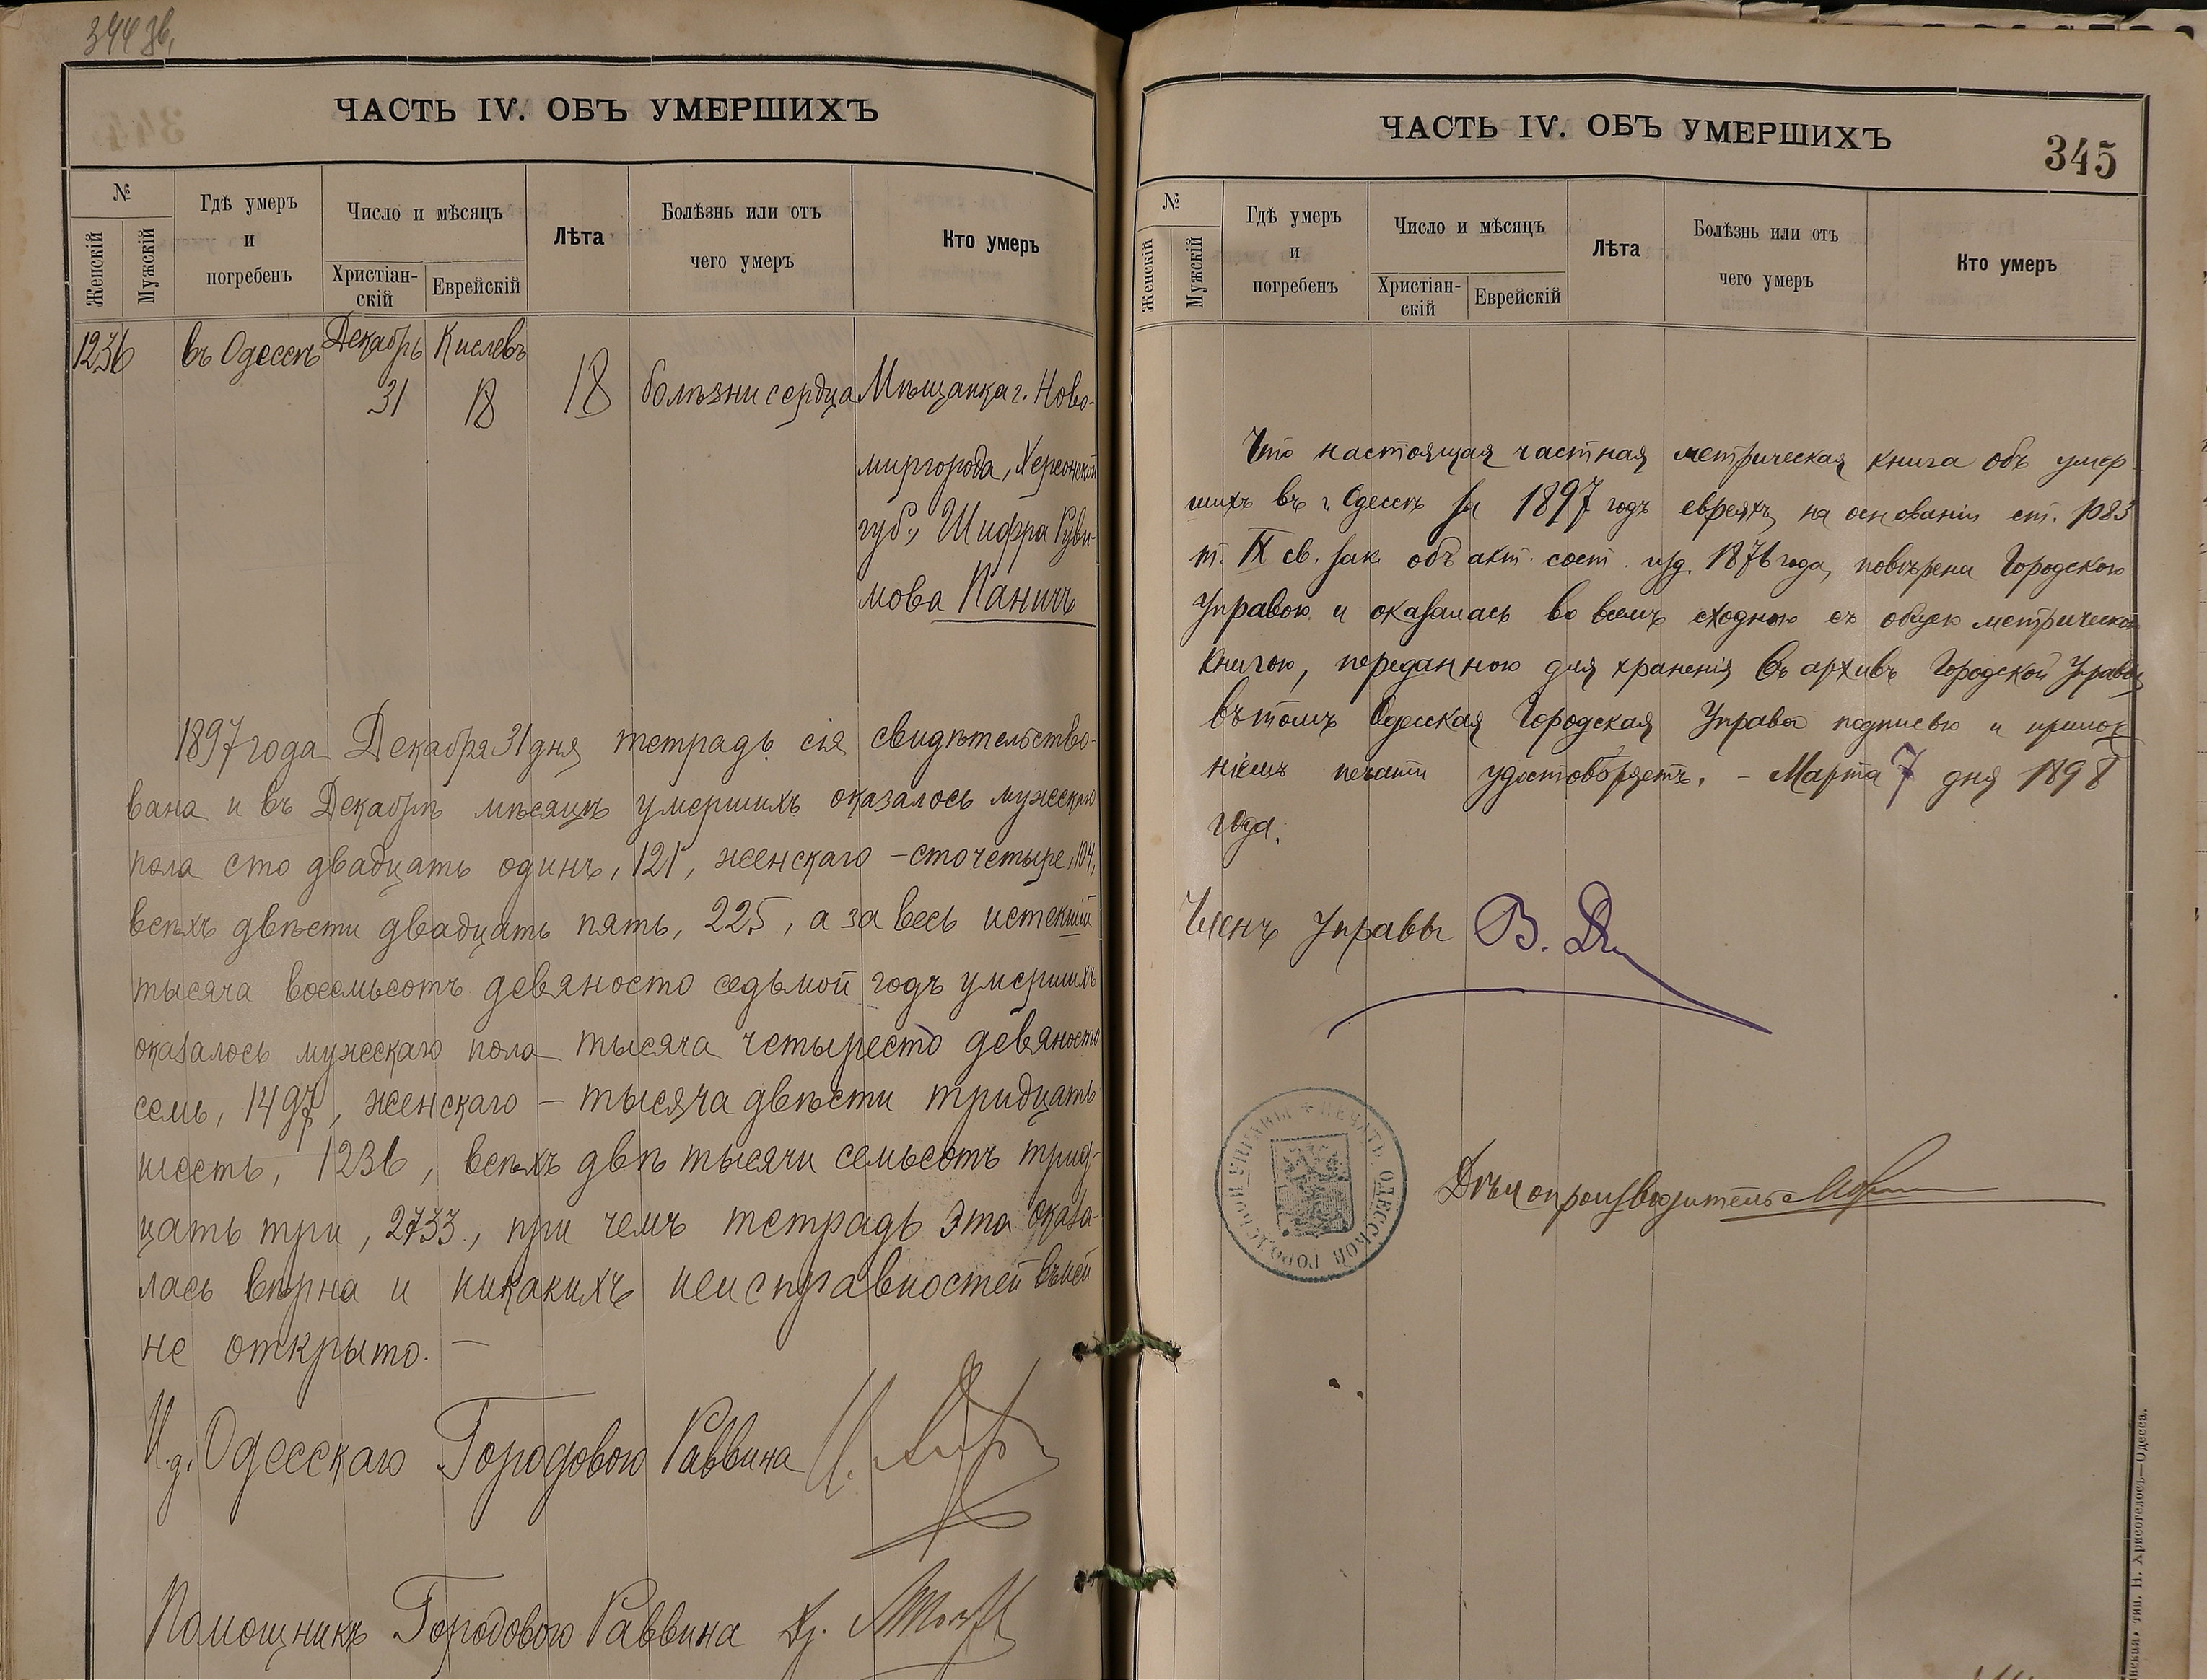 344 об.
ЧАСТЬ IV. ОБЪ УМЕРШИХЪ
№
Женскій
Мужскій
Гдѣ умеръ
и
погребенъ
Число и мѣсяцъ
Христіан-
скій
Еврейскій
Лѣта
Болѣзнь или отъ
чего умеръ
Кто умеръ
1236
въ Одессѣ
Декабрь
31
Кислевъ
18
18
болѣзни сердца
Мѣщанка г. Ново-
миргорода, Херсонской
губ., Шифра Руви-
мова Паничъ
1897 года Декабря 31 дня тетрадь сія свидѣтельство-
вана и въ Декабрѣ мѣсяцѣ умершихъ оказалось мужескаго
пола сто двадцать одинъ, 121, женскаго – сто четыре, 104,
всѣхъ двѣсти двадцать пять, 225, а за весь истекшій
тысяча восемьсотъ девяносто седьмой годъ умершихъ
оказалось мужескаго пола тысяча четыресто девяносто
семь, 1497, женскаго – тысяча двѣсти тридцать
шесть, 1236, всѣхъ двѣ тысячи семьсотъ трид-
цать три, 2733, при чемъ тетрадь эта оказа-
лась вѣрна и никакихъ неисправностей въ ней
не открыто. –
И.д. Одесскаго Городового Раввина
Помощникъ Городового Раввина
ЧАСТЬ IV. ОБЪ УМЕРШИХЪ
345
№
Женскій
Мужскій
Гдѣ умеръ
и
погребенъ
Число и мѣсяцъ
Христіан-
скій
Еврейскій
Лѣта
Болѣзнь или отъ
чего умеръ
Кто умеръ
Что настоящая частная метрическая книга объ умер
шихъ въ г. Одессѣ за 1897 годъ евреяхъ, на основаніи ст. 1083
т. IX св. зак. объ акт. сост. изд. 1876 года, повѣрена Городскою
Управою и оказалась во всемъ сходною съ общею метрическою
книгою, переданною для храненія въ архивъ Городской Управы
въ томъ Одесская Городская Управа подписью и прилож
ніемъ печати удостовѣряетъ. – Марта 7 дня 1898
года.
Членъ Управы В.
ПЕЧАТЬ ОДЕССКОЙ ГОРОДСКОЙ УПРАВЫ
Дѣлопроизводитель
тип. Н. Хрисогелосъ—Одесса.